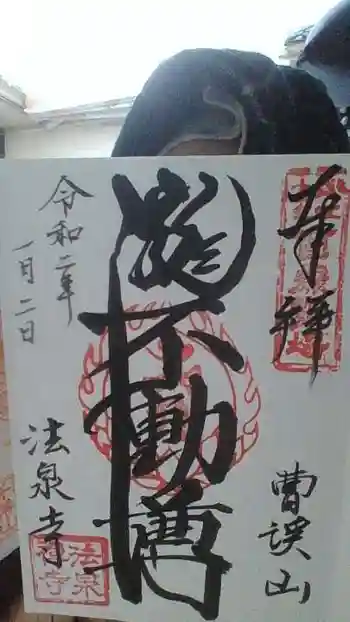 奉拝
曹渓山
不動尊
法泉寺
令和二年
一月二日
法泉寺